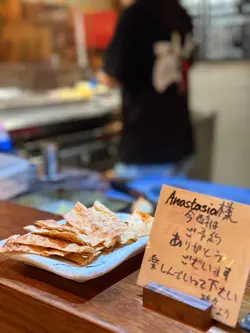 Anastasia様
今回は
ご予約
ありがとう
ございます
楽しんでいって下さい
より